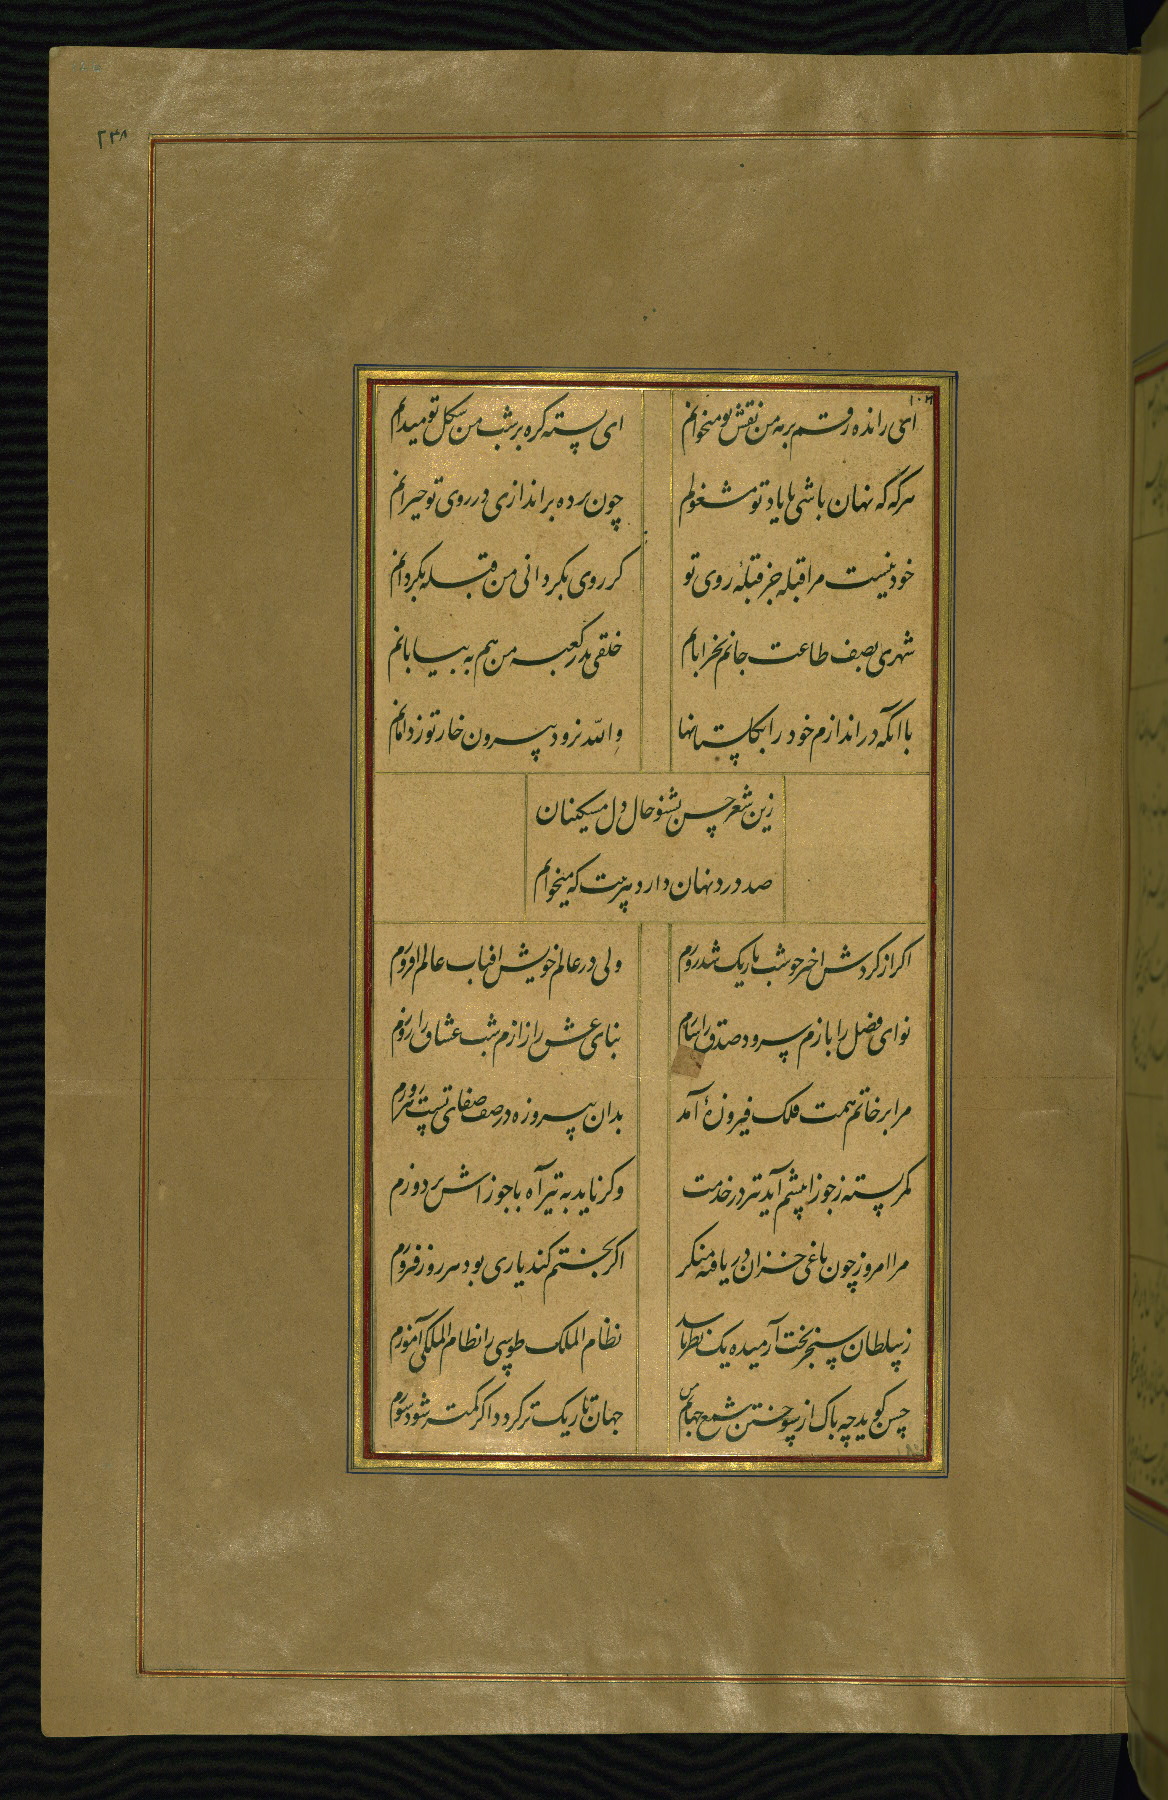 ۲۳۸
ای رانده رقم بر مه من نقش تو میخوانم
ای بسته گره بر شب من شکل تو میدانم
هر گه که نهان باشی با یاد تو مشغولم
چون پرده براندازی در روی تو حیرانم
خود نیست مرا قبله جز قبلهٔ روی تو
کر روی بکردانی من قبله بکردانم
شهری بصف طاعت جانم بخراباتم
خلقی بدر کعبه من هم به بیابانم
با انکه دراندازم خود را بکلستانها
والله نرود بیرون خار تو ز دامانم
زین شعر حسن بشنو حال دل مسکینان
صد درد نهان دارد بیت که میخوانم
اکر از کردش اختر چو شب تاریک شد روزم
ولی در عالم خویش افتاب عالم افروزم
نوای فضل را بازم سرود صدق را سازم
بنای عشق را زازم شب عشاق را روزم
مرا بر خاتم همت فلک فیروزهٔ آمد
بدان پیروزه در صف صفای تست پیروزم
کمر بسته ز جوزا پیشم آید تیر در خدمت
وکر ناید به تیر آه با جوزاش بردوزم
مرا امروز چون باغی خزان دریافته منکر
اکر بختم کند یاری بود هر روز نوروزم
ز سلطان سنجر بخت آرمیده یک نظر باید
نظام الملک طوسی را نظام الملکی آموزم
حسن کوید چه باک از سوختن شمع جهانم من
جهان تاریک تر کردد اکر کمتر شود سوزم